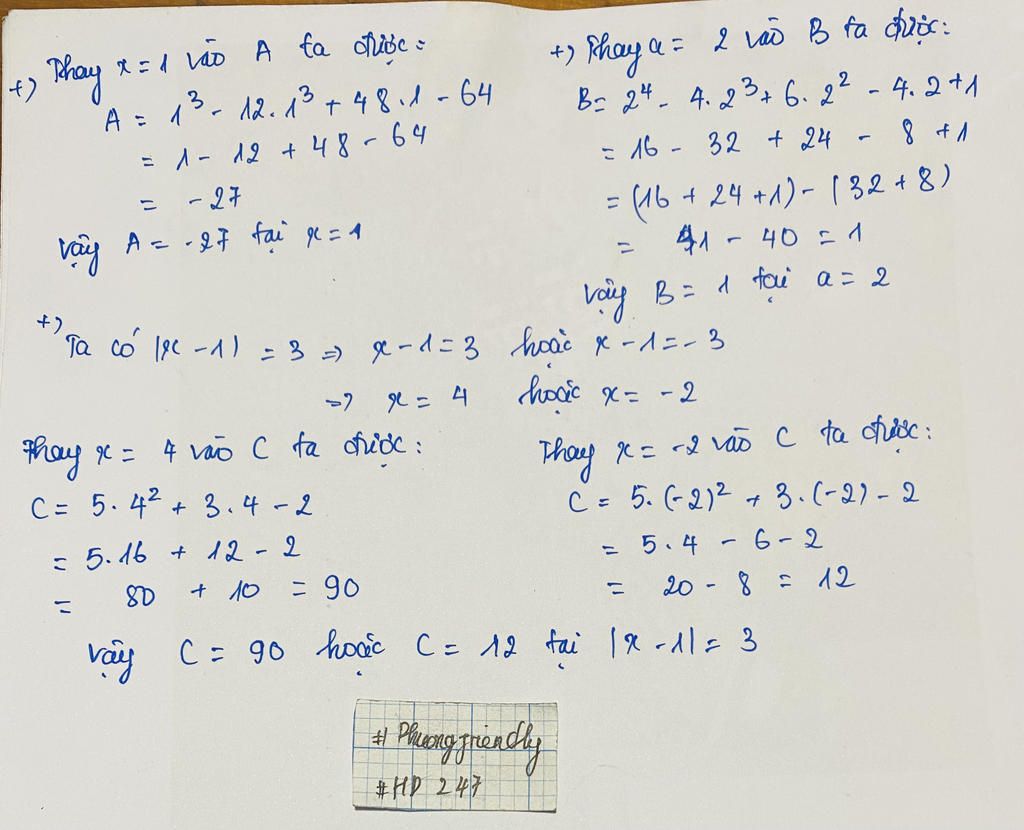 +) Thay x = 1 vào A ta được:
A = 1³ - 12.1³ + 48.1 - 64
= 1 - 12 + 48 - 64
= -27
Vậy A = -27 tại x = 1
+) Thay a = 2 vào B ta được:
B = 2⁴ - 4.2³ + 6.2² - 4.2 + 1
= 16 - 32 + 24 - 8 + 1
= (16 + 24 + 1) - (32 + 8)
= 41 - 40 = 1
Vậy B = 1 tại a = 2
+) Ta có |x - 1| = 3 => x - 1 = 3 hoặc x - 1 = -3
=> x = 4 hoặc x = -2
Thay x = 4 vào C ta được:
C = 5.4² + 3.4 - 2
= 5.16 + 12 - 2
= 80 + 10 = 90
Thay x = -2 vào C ta được:
C = 5.(-2)² + 3.(-2) - 2
= 5.4 - 6 - 2
= 20 - 8 = 12
Vậy C = 90 hoặc C = 12 tại |x - 1| = 3
# Phuongfriendly
#HD 247